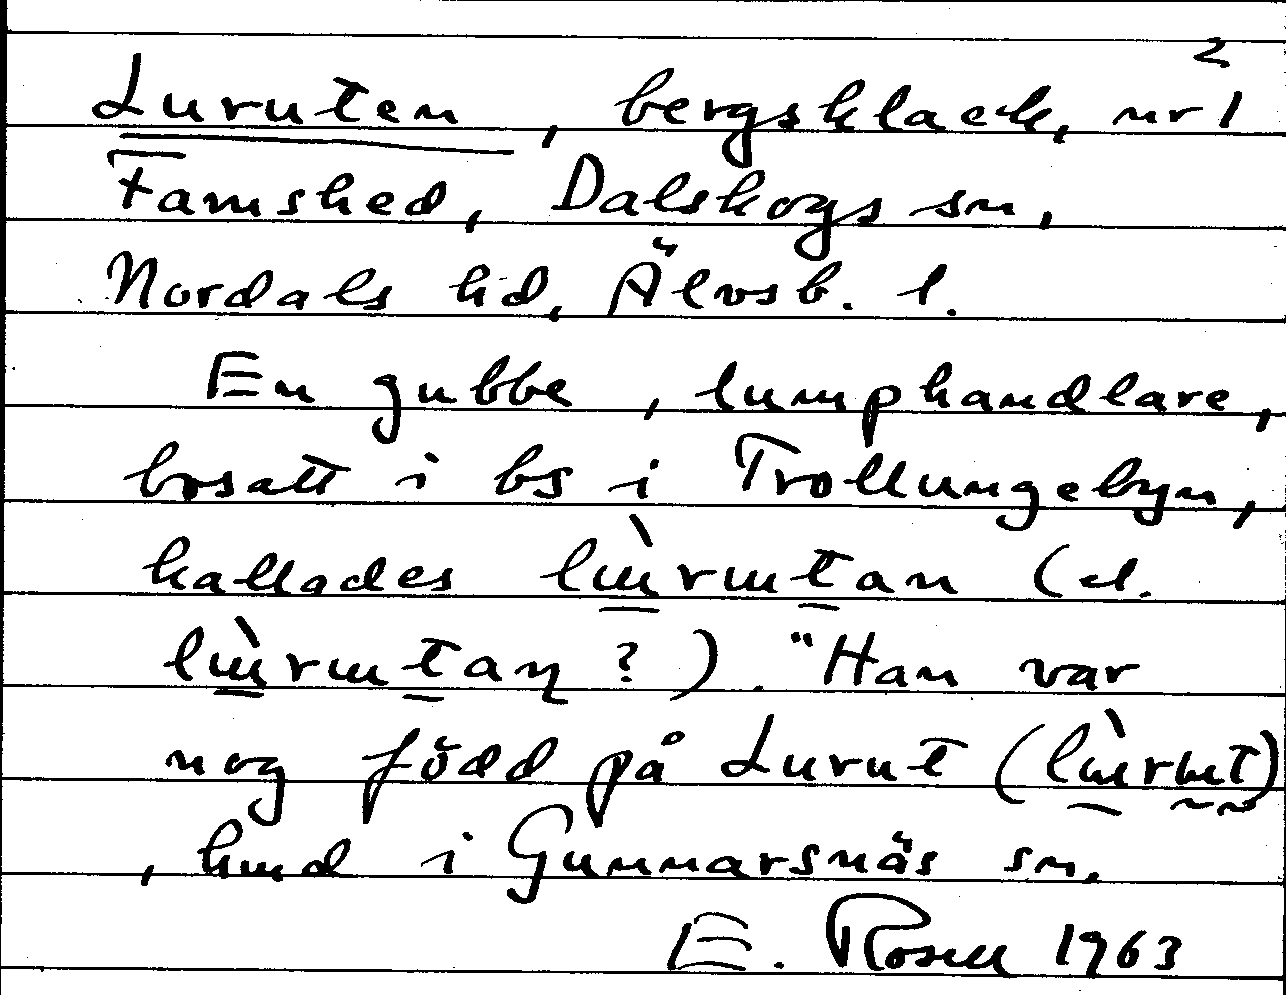 2
Luruten, bergsklack, nr 1
Famshed, Dalskogs sn,
Nordals hd, Älvsb. l.
En gubbe, lumphandlare,
bosatt i bs i Trollungebyn,
kallades lɯ̀rɯtan (el.
lɯ̀rɯtaɳ?). "Han var
nog född på Lurut (lɯ̀rɯt)
, hmd i Gunnarsnäs sn.
E. Rosell 1963